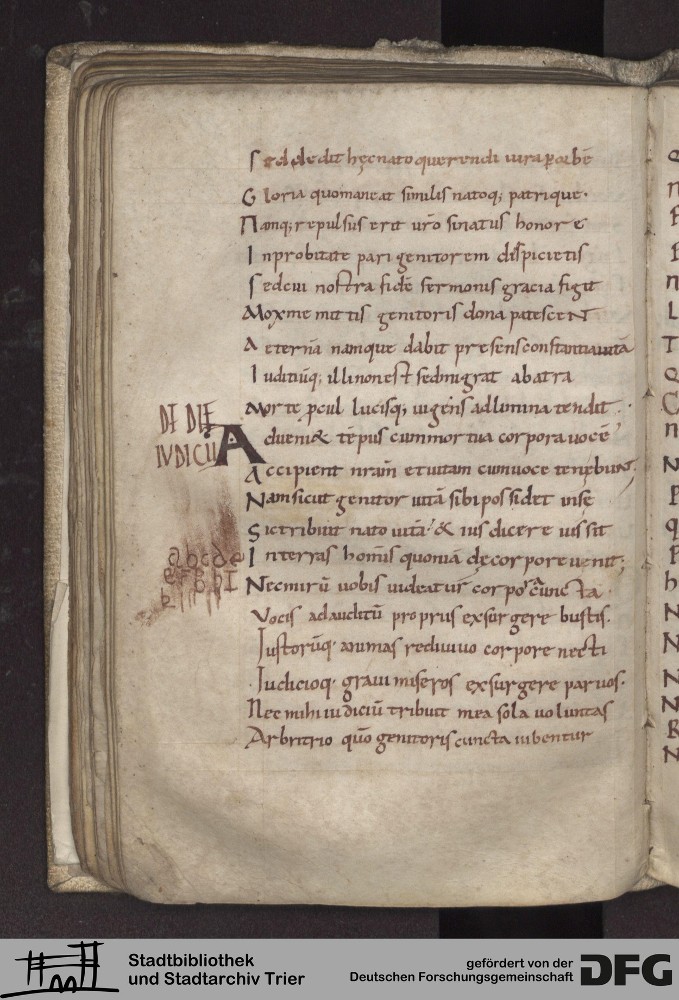 Sed dedit hęc nato querendi iura p orbē
Gloria quo maneat similis natoq; patrique.
Namq; repulsus erit uro sinatus honore
Inprobitate pari genitorem dispicietis
Sed cui nostra fidē sermonis gracia figit
Mox me mittis genitoris dona patescent
Aeterna namque dabit presens constantia uitā
Iuditiūq; illi non est sed migrat ab atra
Morte pcul lucisq; uigens ad limina tendit.
DE DIE
IVDICII
Adueni& tēpus cum mortua corpora uocē
Accipient nram et uitam cum uoce tenebunt;
Nam sicut genitor uitā sibi possidet in se
Sic tribuit nato uitā & ius dicere iussit
In terras hominis quoniā de corpore uenit;
abcde
efghI
Nec mirū uobis uideatur corpora cuncta
Vocis ad auditū proprus exsurgere bustis.
Iustorūq. animas rediuiuo corpore necti
Iudicioq. graui miseros exsurgere paruos.
Nec mihi iudiciū tribuit mea sola uoluntas
Arbitrio quo genitoris cuncta iubentur
Stadtbibliothek
und Stadtarchiv Trier
gefördert von der
Deutschen Forschungsgemeinschaft
DFG